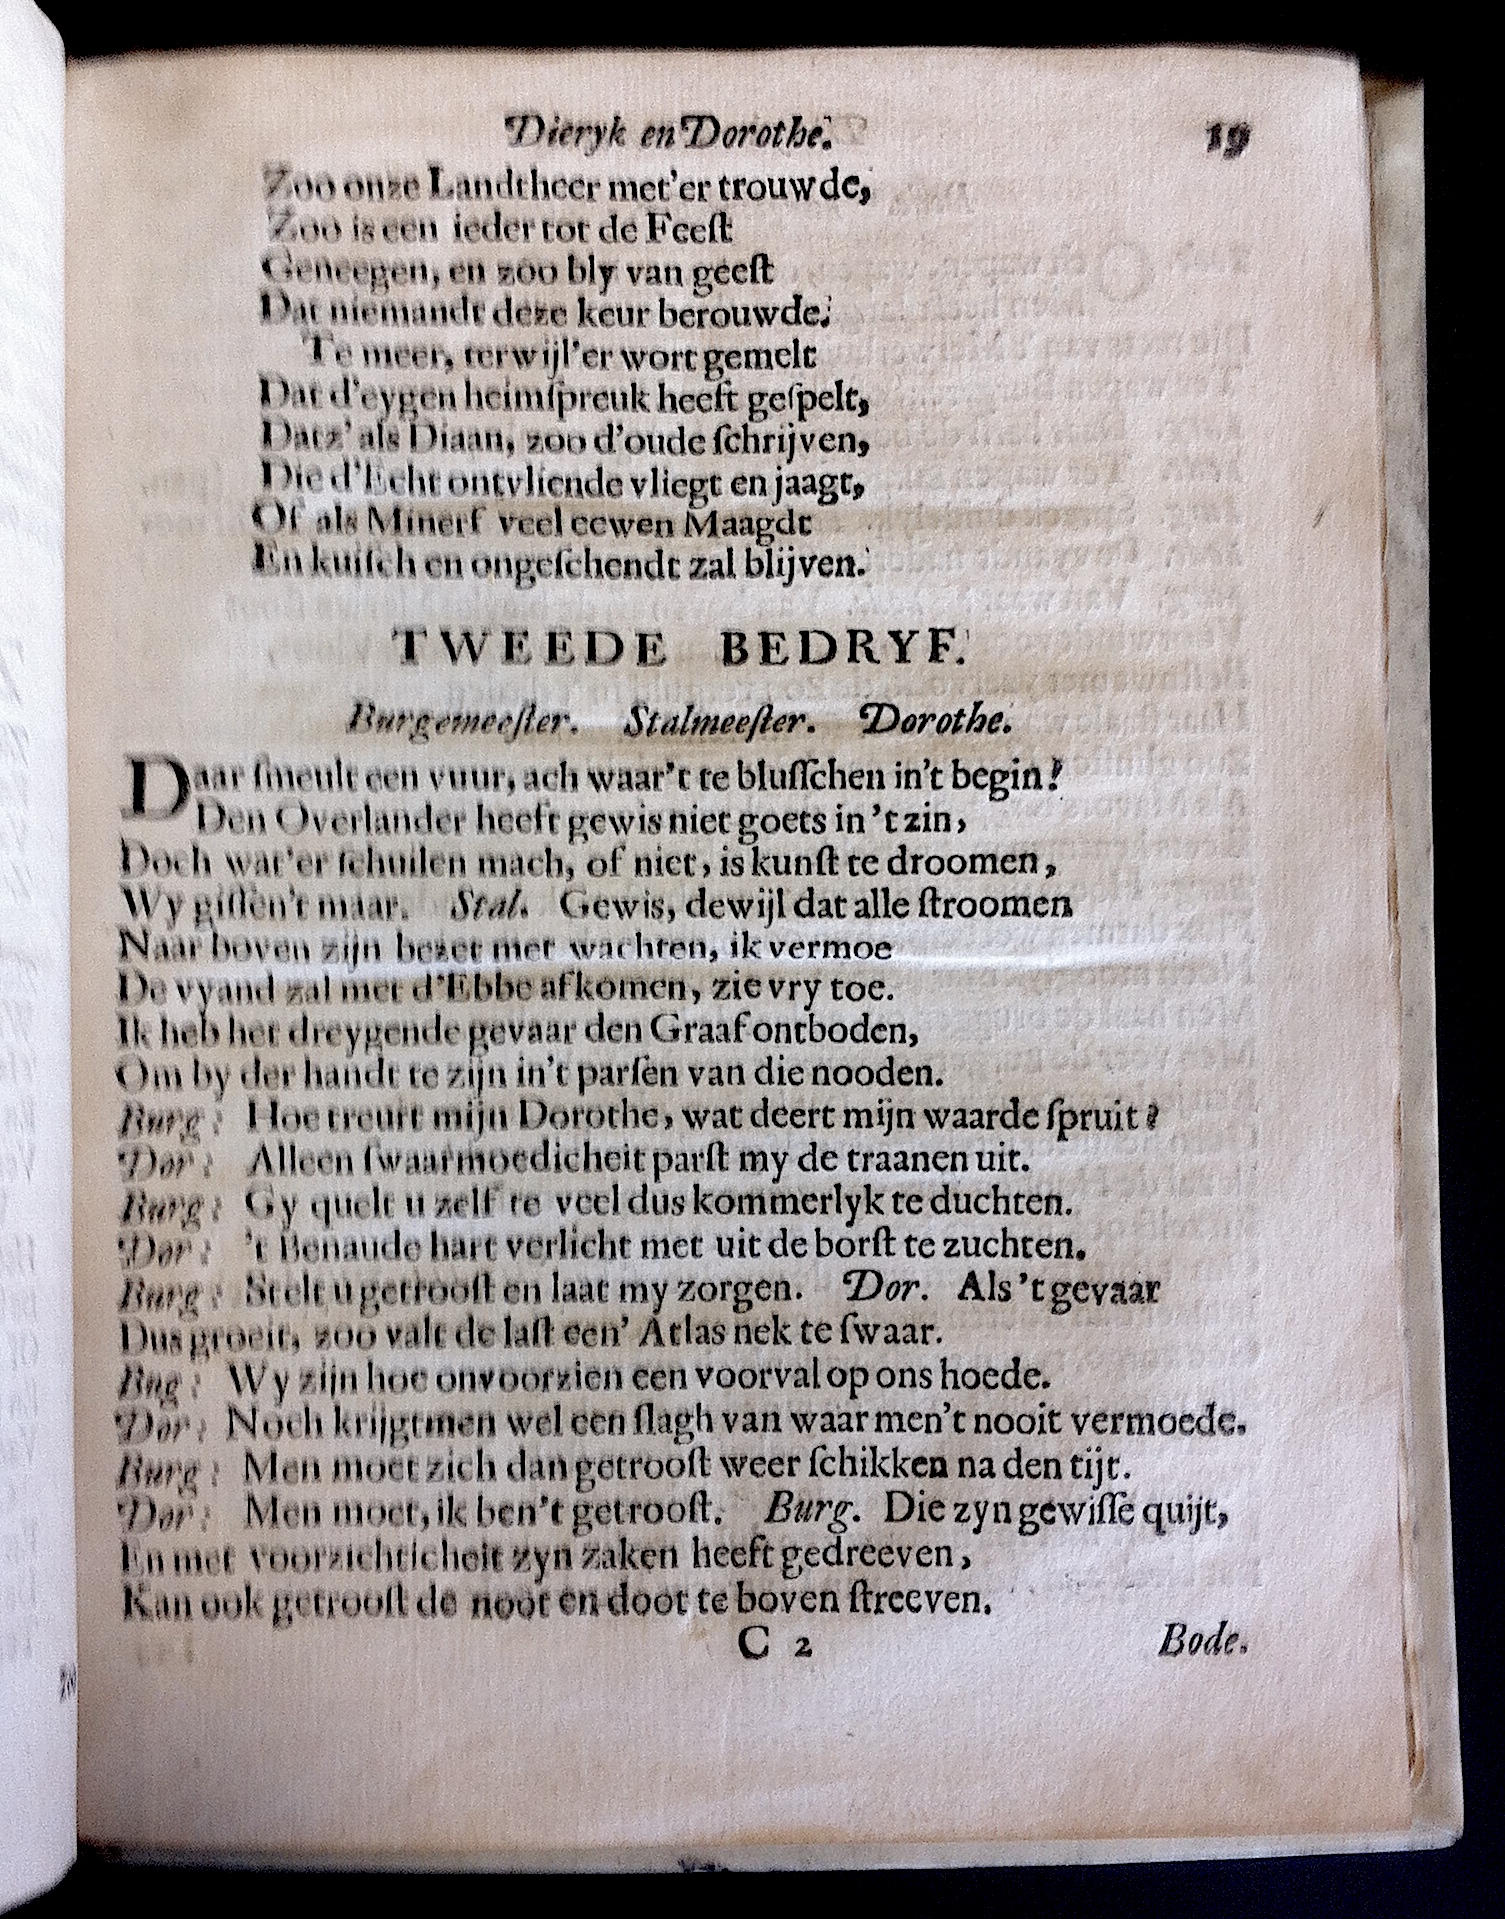 Dieryk en Dorothe. 19
Zoo onze Landtheer met'er trouwde,
Zoo is een ieder tot de Feeſt
Geneegen, en zoo bly van geeſt
Dat niemandt deze keur berouwde.
Te meer, terwijl'er wort gemelt
Dat d'eygen heimſpreuk heeft geſpelt,
Datz' als Diaan, zoo d'oude ſchrijven,
Die d'Echt ontvliende vliegt en jaagt,
Of als Minerf veel eewen Maagdt
En kuiſch en ongeſchendt zal blijven.
TWEEDE BEDRYF.
Burgemeeſter. Stalmeeſter. Dorothe.
Daar ſmeult een vuur, ach waar't te bluſſchen in't begin!
Den Overlander heeft gewis niet goets in 't zin,
Doch wat'er ſchuilen mach, of niet, is kunſt te droomen,
Wy giſſen't maar. Stal. Gewis, dewijl dat alle ſtroomen
Naar boven zijn bezet met wachten, ik vermoe
De vyand zal met d'Ebbe afkomen, zie vry toe.
Ik heb het dreygende gevaar den Graaf ontboden,
Om by der handt te zijn in't parſen van die nooden.
Burg: Hoe treurt mijn Dorothe, wat deert mijn waarde ſpruit?
Dor: Alleen ſwaarmoedicheit parſt my de traanen uit.
Burg: Gy quelt u zelf te veel dus kommerlyk te duchten.
Dor: 't Benaude hart verlicht met uit de borſt te zuchten.
Burg: Stelt u getrooſt en laat my zorgen. Dor. Als 't gevaar
Dus groeit, zoo valt de laſt een' Atlas nek te ſwaar.
Bug: Wy zijn hoe onvoorzien een voorval op ons hoede.
Dor: Noch krijgtmen wel een ſlagh van waar men't nooit vermoede.
Burg: Men moet zich dan getrooſt weer ſchikken na den tijt.
Dor: Men moet, ik ben't getrooſt. Burg. Die zyn gewiſſe quijt,
En met voorzichticheit zyn zaken heeft gedreeven,
Kan ook getrooſt de noot en doot te boven ſtreeven.
C 2 Bode.